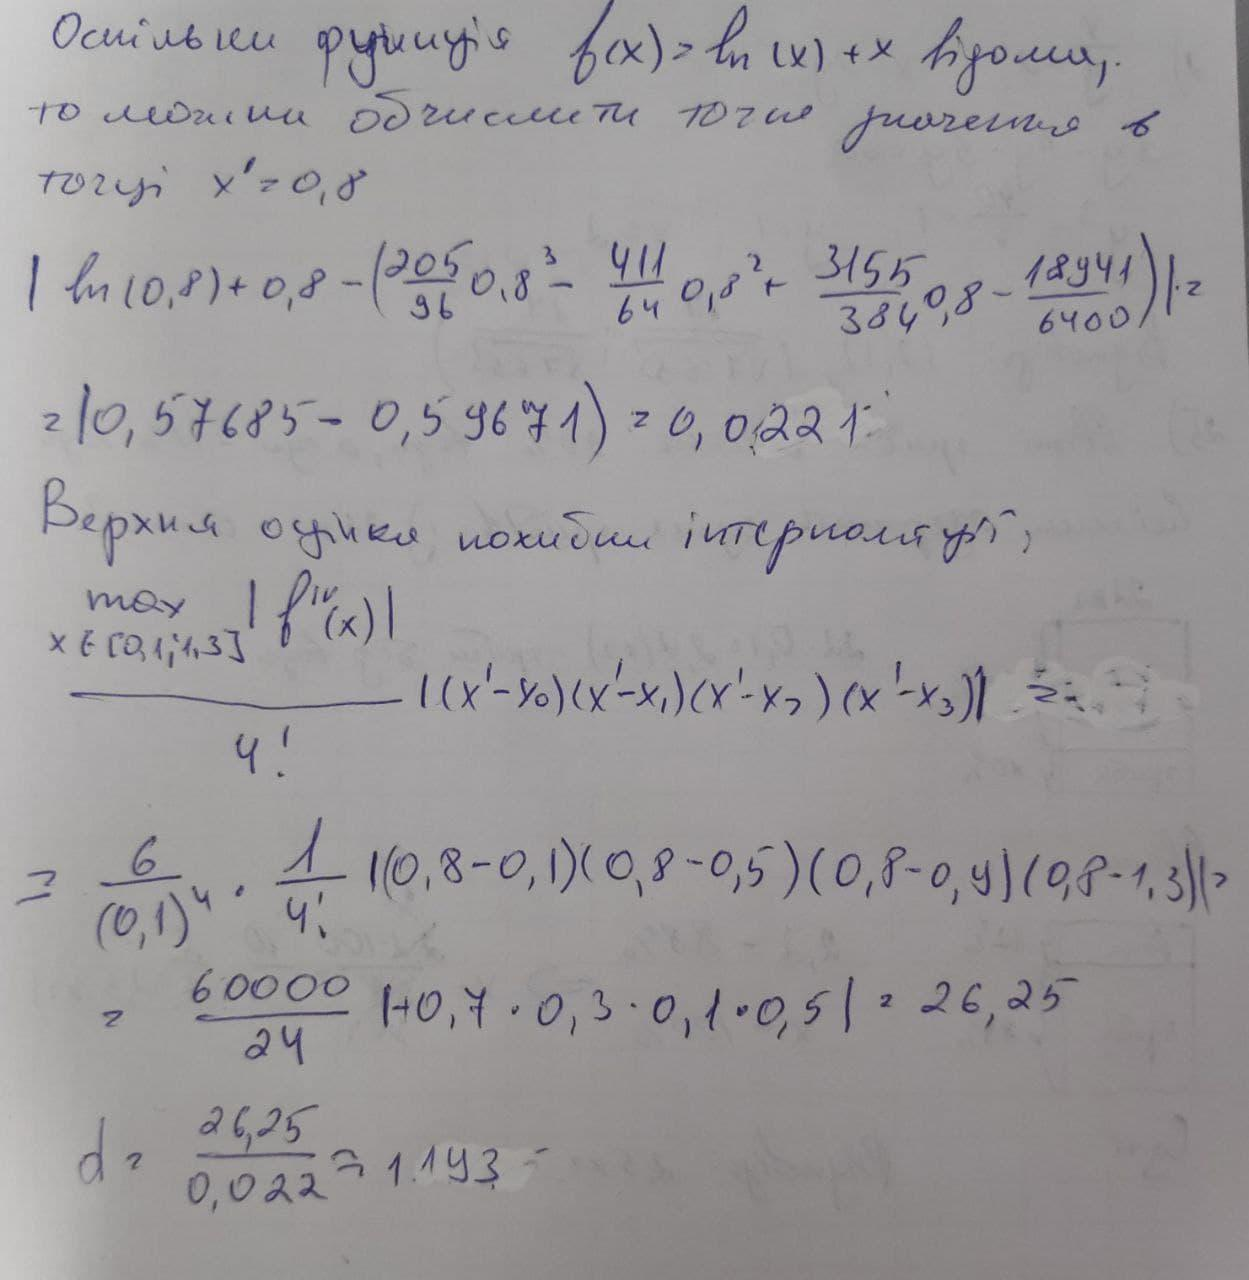 Оскільки функція f(x) = ln(x) + x відома,
то можна обчислити точне значення в
точці x' = 0,8
| ln(0,8) + 0,8 - (205/96 0,8³ - 411/64 0,8² + 3155/384 0,8 - 18941/6400) | =
= |0,57685 - 0,59671) = 0,0221
Верхня оцінка похибки інтерполяції,
max x∈[0,1;1,3] |f^IV(x)| / 4! |(x'-x0)(x'-x1)(x'-x2)(x'-x3)| =
= 6/(0,1)⁴ · 1/4! |(0,8-0,1)(0,8-0,5)(0,8-0,9)(0,8-1,3)| =
= 60000/24 |+0,7 · 0,3 · 0,1 · 0,5| = 26,25
d = 26,25/0,022 = 1.193